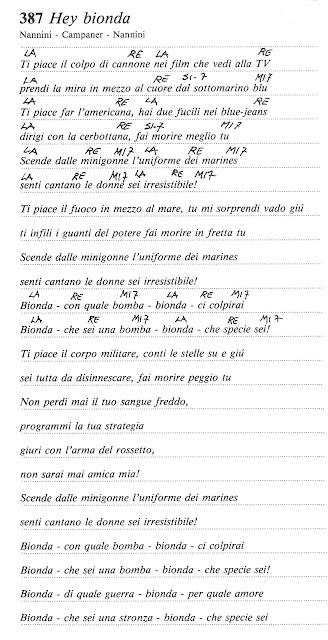 387 Hey bionda
Nannini - Campaner - Nannini
LA RE LA RE
Ti piace il colpo di cannone nei film che vedi alla TV
LA RE SI-7 MI7
prendi la mira in mezzo al cuore dal sottomarino blu
LA RE LA RE
Ti piace far l'americana, hai due fucili nei blue-jeans
LA RE SI-7 MI7
dirigi con la cerbottana, fai morire meglio tu
LA RE MI7 LA RE MI7
Scende dalle minigonne l'uniforme dei marines
LA RE MI7 LA RE MI7
senti cantano le donne sei irresistibile!
Ti piace il fuoco in mezzo al mare, tu mi sorprendi vado giú
ti infili i guanti del potere fai morire in fretta tu
Scende dalle minigonne l'uniforme dei marines
senti cantano le donne sei irresistibile!
LA RE MI7 LA RE MI7
Bionda - con quale bomba - bionda - ci colpirai
LA RE MI7 LA RE MI7
Bionda - che sei una bomba - bionda - che specie sei!
Ti piace il corpo militare, conti le stelle su e giú
sei tutta da disinnescare, fai morire peggio tu
Non perdi mai il tuo sangue freddo,
programmi la tua strategia
giuri con l'arma del rossetto,
non sarai mai amica mia!
Scende dalle minigonne l'uniforme dei marines
senti cantano le donne sei irresistibile!
Bionda - con quale bomba - bionda - ci colpirai
Bionda - che sei una bomba - bionda - che specie sei!
Bionda - di quale guerra - bionda - per quale amore
Bionda - che sei una stronza - bionda - che specie sei